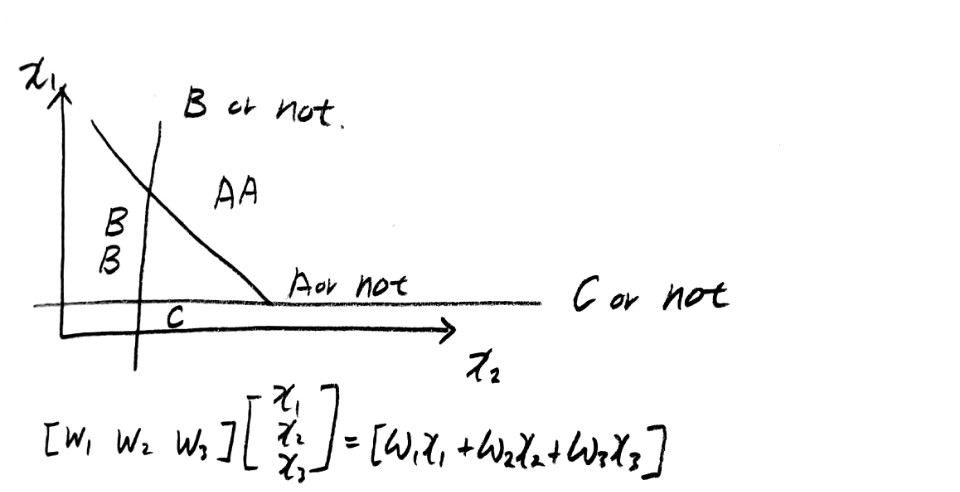 x₁
B or not.
AA
B
B
A or not
C or not
C
x₂
[W₁ W₂ W₃] [x₁ x₂ x₃] = [W₁x₁ + W₂x₂ + W₃x₃]